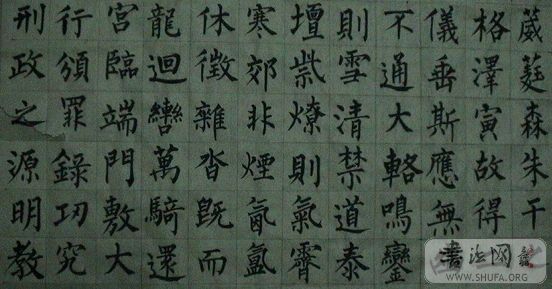 葳蕤森朱干
格澤寅故得
儀垂斯應無
不通大輅鳴鑾
則雪清禁道泰
壇祡燎則氣霽
寒郊非煙氤氳
休徵雜沓既而
龍迴轡萬騎還
宮臨端門敷大
行頒罪錄功究
刑政之源明教
書法网
WWW.SHUFA.ORG